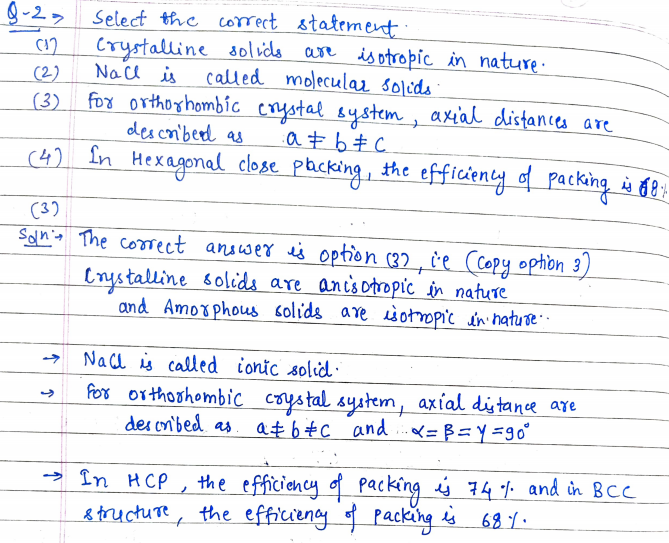 Q-2 → Select the correct statement.
(1) Crystalline solids are isotropic in nature.
(2) NaCl is called molecular solids.
(3) for orthorhombic crystal system, axial distances are
described as a ≠ b ≠ c
(4) In Hexagonal close packing, the efficiency of packing is 68%
(3)
Soln:→ The correct answer is option (3), i.e (Copy option 3)
Crystalline solids are anisotropic in nature
and Amorphous solids are isotropic in nature..
→ NaCl is called ionic solid.
→ for orthorhombic crystal system, axial distance are
described as a ≠ b ≠ c and α = β = γ = 90°
→ In HCP, the efficiency of packing is 74 %. and in BCC
structure, the efficiency of packing is 68 %.